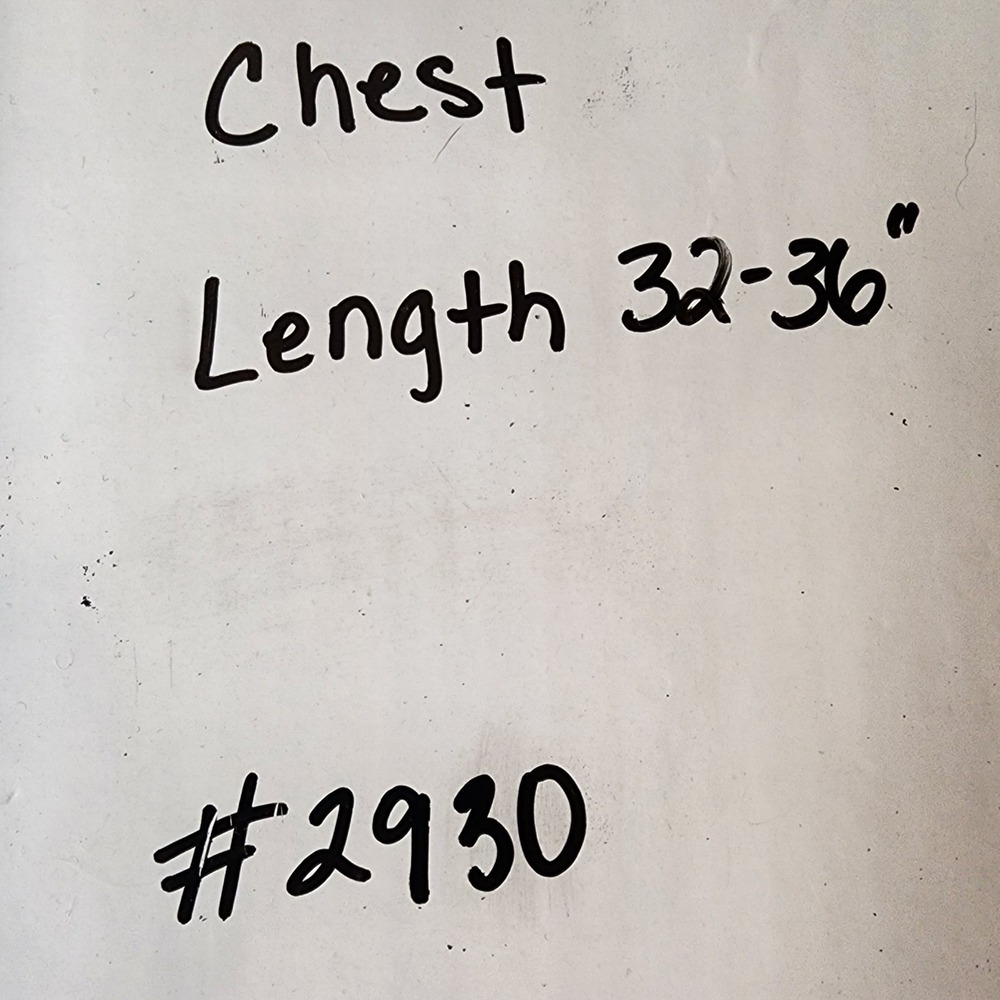 Chest
Length 32-36"
#2930